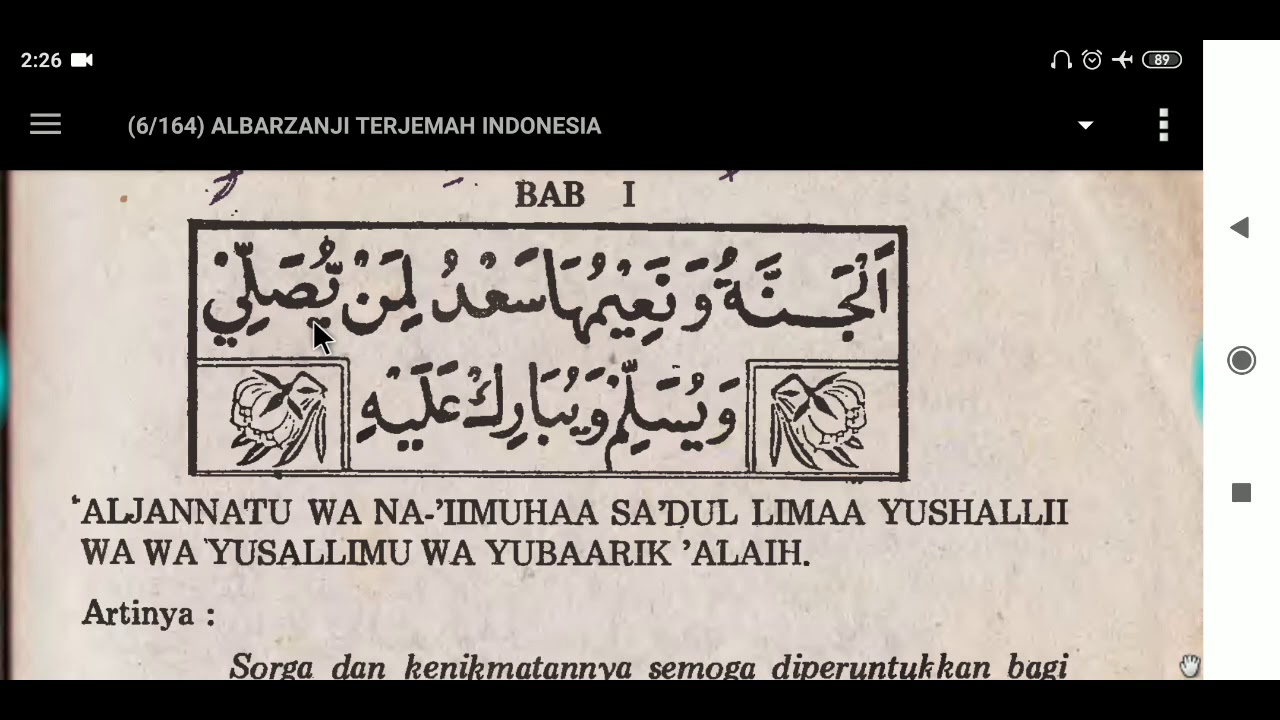 2:26
89
(6/164) ALBARZANJI TERJEMAH INDONESIA
BAB I
اَلْجَنَّةُ وَنَعِيْمُهَا سَعْدٌ لِمَنْ يُّصَلِّيْ
وَيُسَلِّمْ وَيُبَارِكْ عَلَيْهِ
'ALJANNATU WA NA-'IIMUHAA SA'DUL LIMAA YUSHALLII
WA WA YUSALLIMU WA YUBAARIK 'ALAIH.
Artinya :
Sorga dan kenikmatannya semoga diperuntukkan bagi